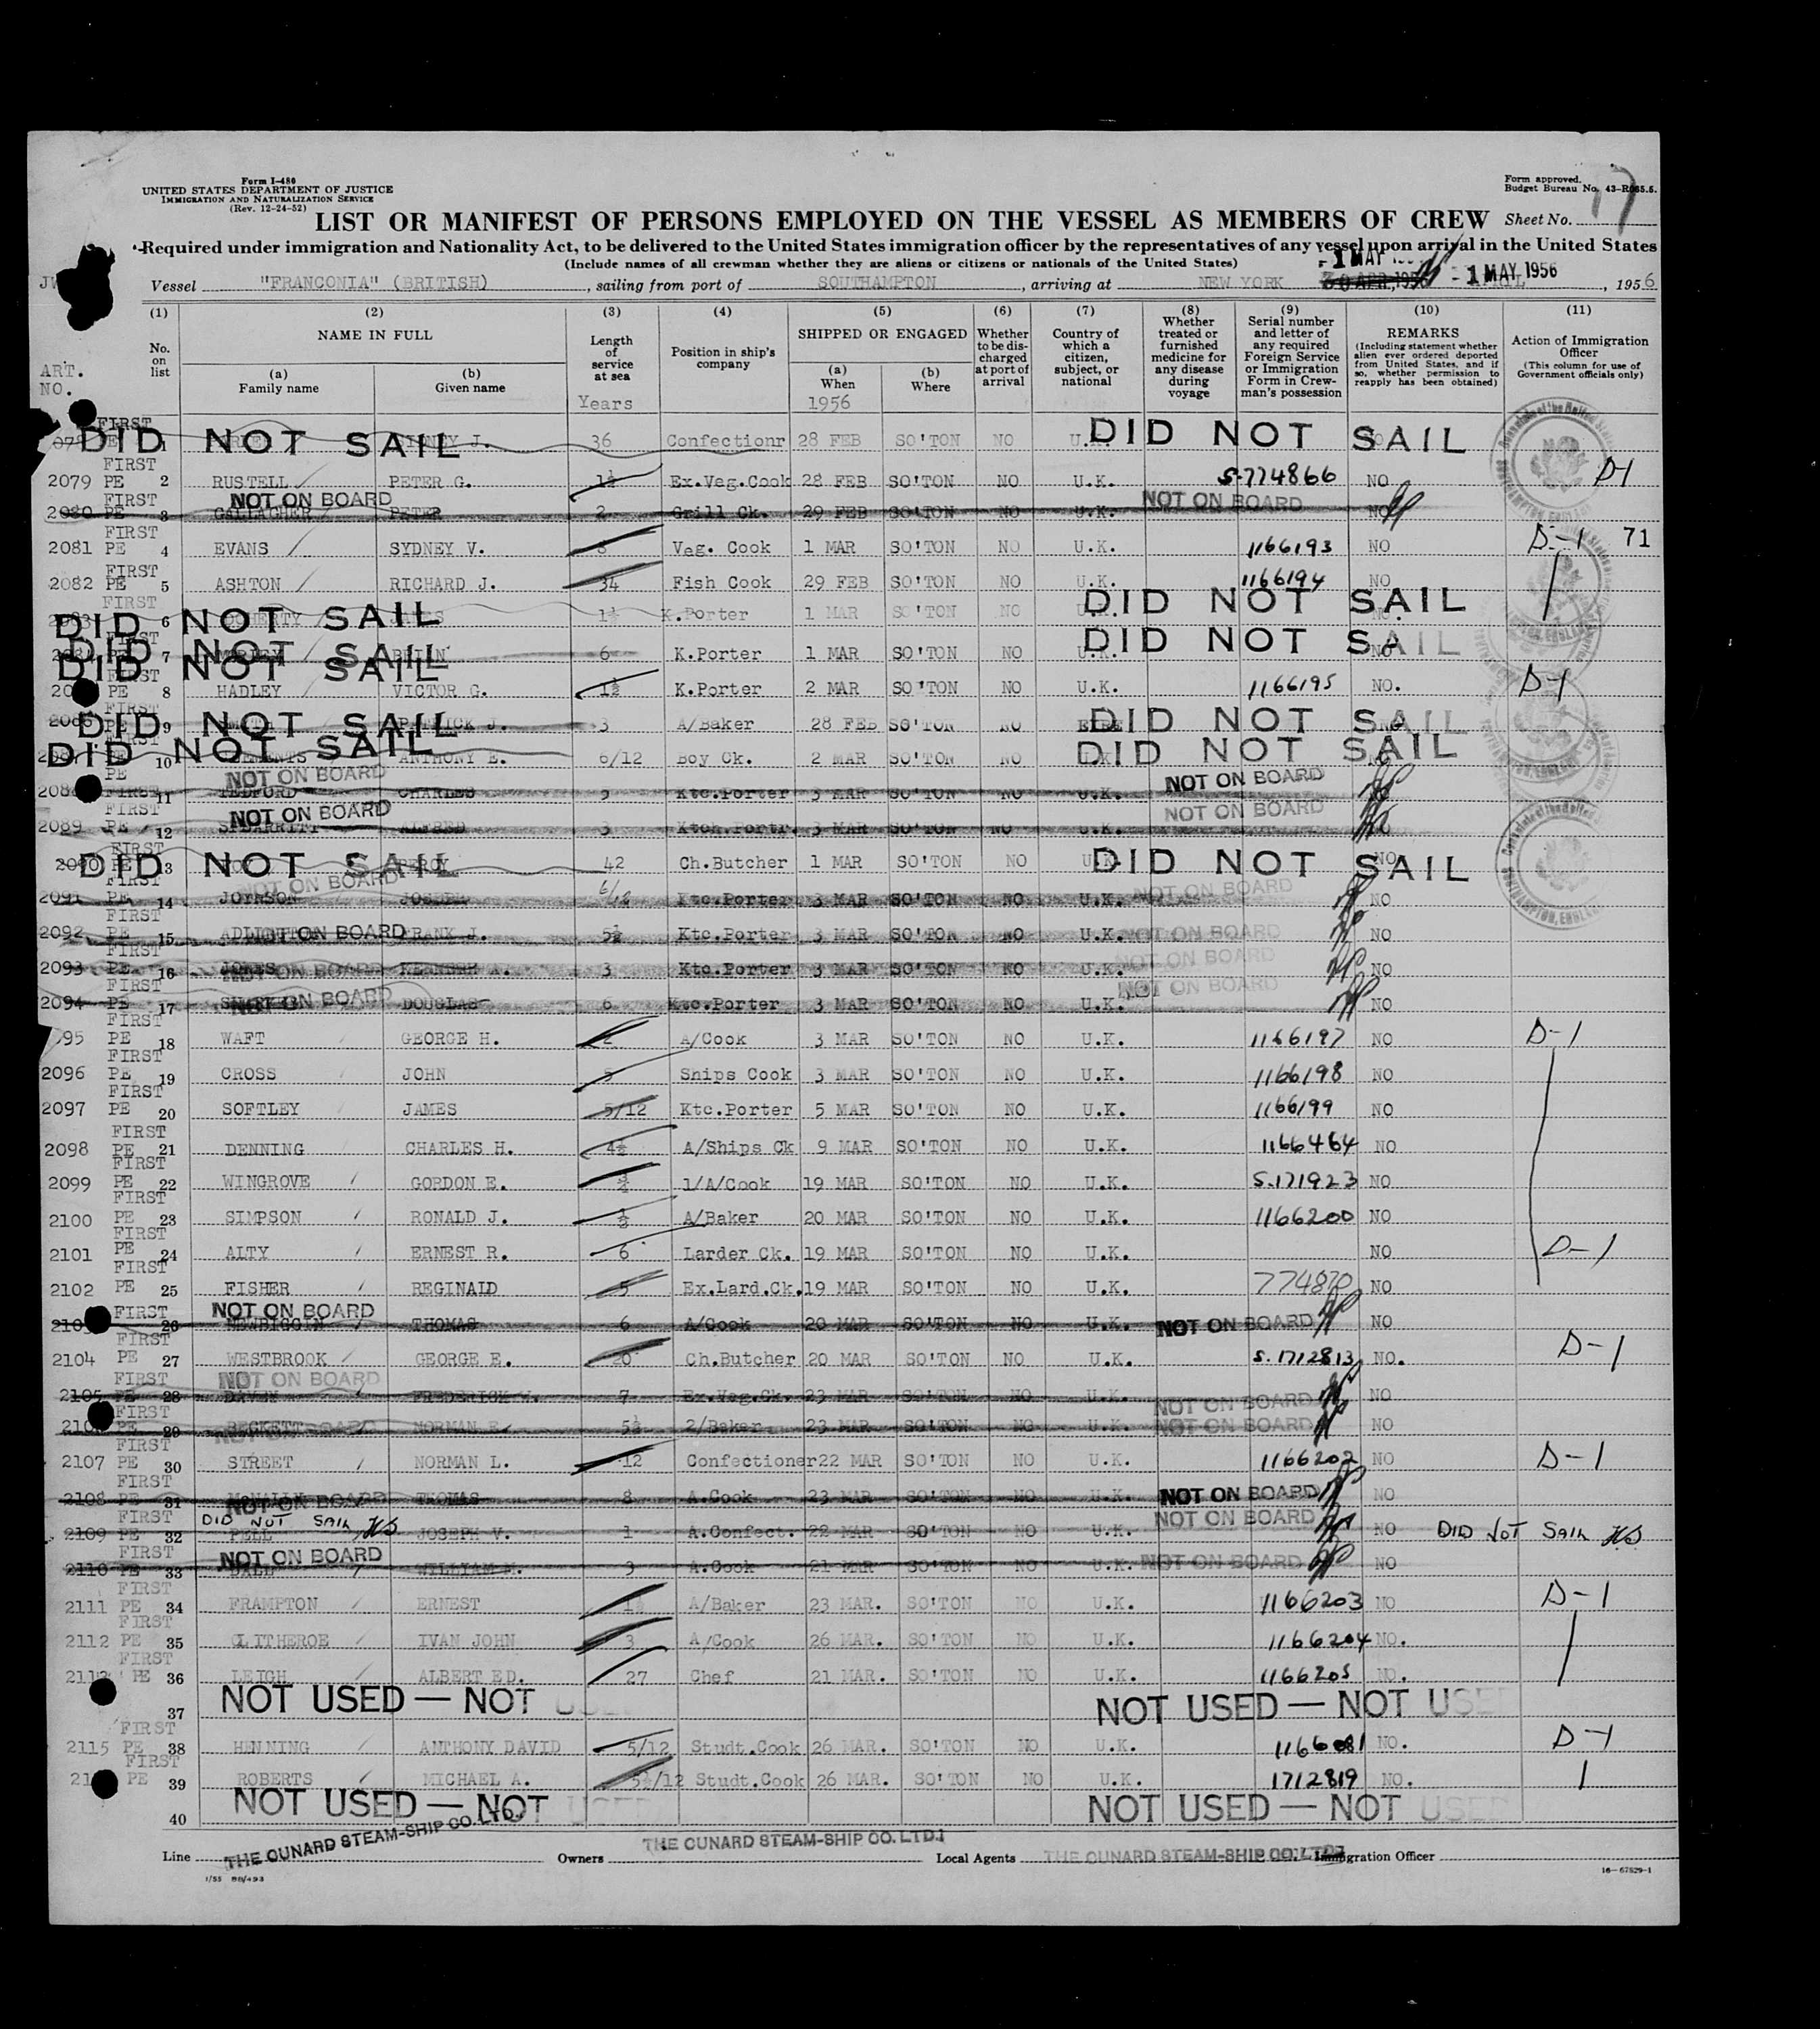 Form I-480
UNITED STATES DEPARTMENT OF JUSTICE
IMMIGRATION AND NATURALIZATION SERVICE
(Rev. 12-24-52)
Form approved.
Budget Bureau No. 43-R065.5.
LIST OR MANIFEST OF PERSONS EMPLOYED ON THE VESSEL AS MEMBERS OF CREW Sheet No. 17
Required under immigration and Nationality Act, to be delivered to the United States immigration officer by the representatives of any vessel upon arrival in the United States
(Include names of all crewman whether they are aliens or citizens or nationals of the United States)
Vessel "FRANCONIA" (BRITISH), sailing from port of SOUTHAMPTON, arriving at NEW YORK 30 APR 1956 - 1 MAY 1956, 1956
(1) No. on list
(2) NAME IN FULL (a) Family name (b) Given name
(3) Length of service at sea Years
(4) Position in ship's company
(5) SHIPPED OR ENGAGED (a) When 1956 (b) Where
(6) Whether to be discharged at port of arrival
(7) Country of which a citizen, subject, or national
(8) Whether treated or furnished medicine for any disease during voyage
(9) Serial number and letter of any required Foreign Service or Immigration Form in Crewman's possession
(10) REMARKS (Including statement whether alien ever ordered deported from United States, and if so, whether permission to reapply has been obtained)
(11) Action of Immigration Officer (This column for use of Government officials only)
ART. NO.
FIRST PE 1 DID NOT SAIL J. 36 Confectionr 28 FEB SO'TON NO DID NOT SAIL
2079 FIRST PE 2 RUSTELL PETER G. 1½ Ex.Veg.Cook 28 FEB SO'TON NO U.K. S-774866 NO D-1
2080 FIRST PE 3 NOT ON BOARD GALLAGHER PETER 2 Grill Ck. 29 FEB SO'TON NO U.K. NOT ON BOARD NO
2081 FIRST PE 4 EVANS SYDNEY V. 8 Veg. Cook 1 MAR SO'TON NO U.K. 1166193 NO D-1 71
2082 FIRST PE 5 ASHTON RICHARD J. 34 Fish Cook 29 FEB SO'TON NO U.K. 1166194 NO
FIRST 6 DID NOT SAIL K.Porter 1 MAR SO'TON NO DID NOT SAIL
FIRST 7 DID NOT SAIL 6 K.Porter 1 MAR SO'TON NO DID NOT SAIL NO
DID NOT SAIL
FIRST PE 8 HADLEY VICTOR G. 1½ K.Porter 2 MAR SO'TON NO U.K. 1166195 NO. D-1
2086 FIRST PE 9 DID NOT SAIL PATRICK J. 3 A/Baker 28 FEB SO'TON NO EIRE DID NOT SAIL
FIRST 10 DID NOT SAIL ANTHONY E. 6/12 Boy Ck. 2 MAR SO'TON NO DID NOT SAIL
PE FIRST 11 NOT ON BOARD CHARLES Ktc.Porter 3 MAR SO'TON NO U.K. NOT ON BOARD
2089 FIRST PE 12 NOT ON BOARD ALFRED 3 3 MAR SO'TON NO U.K. NOT ON BOARD NO
2090 FIRST 13 DID NOT SAIL PERCY 42 Ch.Butcher 1 MAR SO'TON NO DID NOT SAIL NO
2091 FIRST PE 14 NOT ON BOARD JOHNSON JOSEPH 6/12 Ktc.Porter 3 MAR SO'TON NO U.K. NOT ON BOARD NO
2092 FIRST PE 15 NOT ON BOARD FRANK J. 5½ Ktc.Porter 3 MAR SO'TON NO U.K. NOT ON BOARD NO
2093 FIRST PE 16 JONES NOT ON BOARD KENNETH A. 3 Ktc.Porter 3 MAR SO'TON NO U.K. NOT ON BOARD NO
2094 FIRST PE 17 NOT ON BOARD DOUGLAS 6 Ktc.Porter 3 MAR SO'TON NO U.K. NOT ON BOARD NO
95 FIRST PE 18 WAFT GEORGE H. 2 A/Cook 3 MAR SO'TON NO U.K. 1166197 NO D-1
2096 FIRST PE 19 CROSS JOHN 5 Ships Cook 3 MAR SO'TON NO U.K. 1166198 NO
2097 FIRST PE 20 SOFTLEY JAMES 5/12 Ktc.Porter 5 MAR SO'TON NO U.K. 1166199 NO
2098 FIRST PE 21 DENNING CHARLES H. 4½ A/Ships Ck 9 MAR SO'TON NO U.K. 1166464 NO
2099 FIRST PE 22 WINGROVE GORDON E. 1/A/Cook 19 MAR SO'TON NO U.K. S.171923 NO
2100 FIRST PE 23 SIMPSON RONALD J. A/Baker 20 MAR SO'TON NO U.K. 1166200 NO
2101 FIRST PE 24 ALTY ERNEST R. 6 Larder Ck. 19 MAR SO'TON NO U.K. NO D-1
2102 FIRST PE 25 FISHER REGINALD 5 Ex.Lard.Ck. 19 MAR SO'TON NO U.K. 774870 NO
FIRST 26 NOT ON BOARD NEWBIGGIN THOMAS 6 A/Cook 20 MAR SO'TON NO U.K. NOT ON BOARD NO
2104 FIRST PE 27 WESTBROOK GEORGE E. 20 Ch.Butcher 20 MAR SO'TON NO U.K. S.1712813 NO. D-1
2105 FIRST PE 28 NOT ON BOARD DAVEY FREDERICK 7 Ex.Veg.Ck. 23 MAR SO'TON NO U.K. NOT ON BOARD NO
FIRST PE 29 BECKETT NOT ON BOARD NORMAN E. 5½ 2/Baker 23 MAR SO'TON NO U.K. NOT ON BOARD NO
2107 FIRST PE 30 STREET NORMAN L. 12 Confectioner 22 MAR SO'TON NO U.K. 1166202 NO D-1
2108 FIRST PE 31 NOT ON BOARD THOMAS 8 A.Cook 23 MAR SO'TON NO U.K. NOT ON BOARD NO
2109 FIRST PE 32 DID NOT SAIL HS PELL JOSEPH V. 1 A.Confect. 22 MAR SO'TON NO U.K. NOT ON BOARD NO DID NOT SAIL HS
2110 FIRST PE 33 NOT ON BOARD WILLIAM 3 A.Cook 21 MAR SO'TON NO U.K. NOT ON BOARD NO
2111 FIRST PE 34 FRAMPTON ERNEST A/Baker 23 MAR. SO'TON NO U.K. 1166203 NO D-1
2112 FIRST PE 35 CLITHEROE IVAN JOHN 3 A/Cook 26 MAR. SO'TON NO U.K. 1166204 NO.
FIRST PE 36 LEIGH ALBERT ED. 27 Chef 21 MAR. SO'TON NO U.K. 1166205 NO.
37 NOT USED — NOT USED NOT USED — NOT USED
2115 FIRST PE 38 HENNING ANTHONY DAVID 5/12 Studt.Cook 26 MAR. SO'TON NO U.K. 1166081 NO. D-1
FIRST PE 39 ROBERTS MICHAEL A. 5½/12 Studt.Cook 26 MAR. SO'TON NO U.K. 1712819 NO.
40 NOT USED — NOT USED NOT USED — NOT USED
Line THE CUNARD STEAM-SHIP CO. LTD. Owners THE CUNARD STEAM-SHIP CO. LTD. Local Agents THE CUNARD STEAM-SHIP CO. LTD. Immigration Officer
1/55
16-67529-1